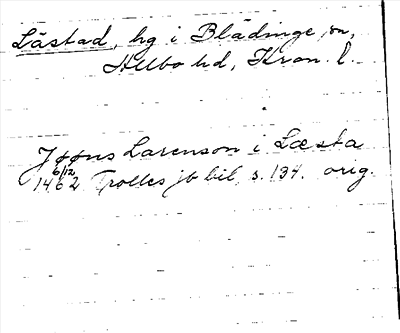 Låstad, hg i Blädinge sn,
Allbo hd, Kron. l.
Jøøns Larenson i Læsta
6/12
1462 Trolles jb bil. s. 134. orig.